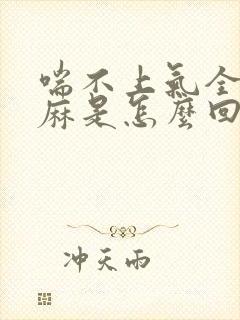 喘不上氣全
麻是怎麼回
冲天雨